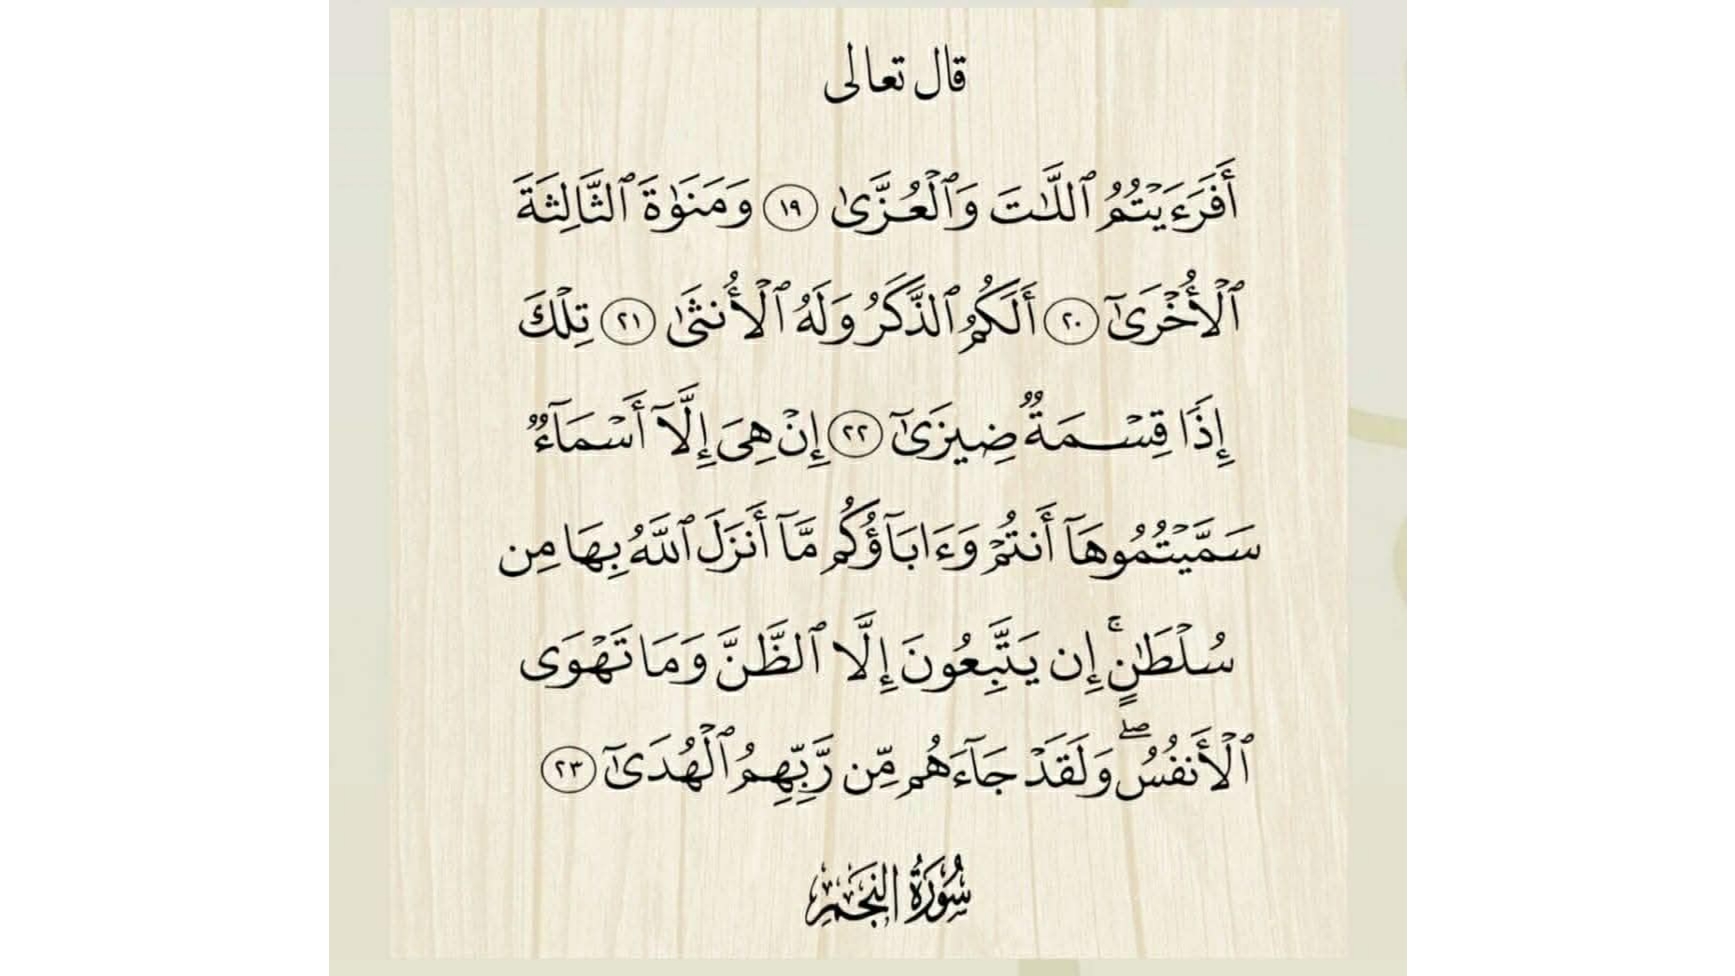 قال تعالى
أَفَرَءَيْتُمُ ٱللَّٰتَ وَٱلْعُزَّىٰ ١٩ وَمَنَوٰةَ ٱلثَّالِثَةَ
ٱلْأُخْرَىٰٓ ٢٠ أَلَكُمُ ٱلذَّكَرُ وَلَهُ ٱلْأُنثَىٰ ٢١ تِلْكَ
إِذًا قِسْمَةٌ ضِيزَىٰٓ ٢٢ إِنْ هِىَ إِلَّآ أَسْمَآءٌ
سَمَّيْتُمُوهَآ أَنتُمْ وَءَابَآؤُكُم مَّآ أَنزَلَ ٱللَّهُ بِهَا مِن
سُلْطَٰنٍ ۚ إِن يَتَّبِعُونَ إِلَّا ٱلظَّنَّ وَمَا تَهْوَى
ٱلْأَنفُسُ ۖ وَلَقَدْ جَآءَهُم مِّن رَّبِّهِمُ ٱلْهُدَىٰٓ ٢٣
سُورَةُ النَّجْمِ